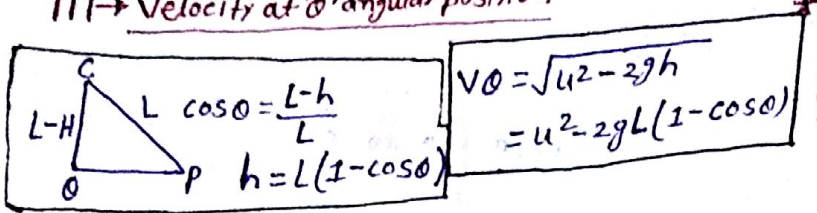 III→ Velocity at θ angular position.
C
L-H L cosθ = L-h/L
Q P h = L(1-cosθ)
Vθ = √u²-2gh
= u²-2gL(1-cosθ)